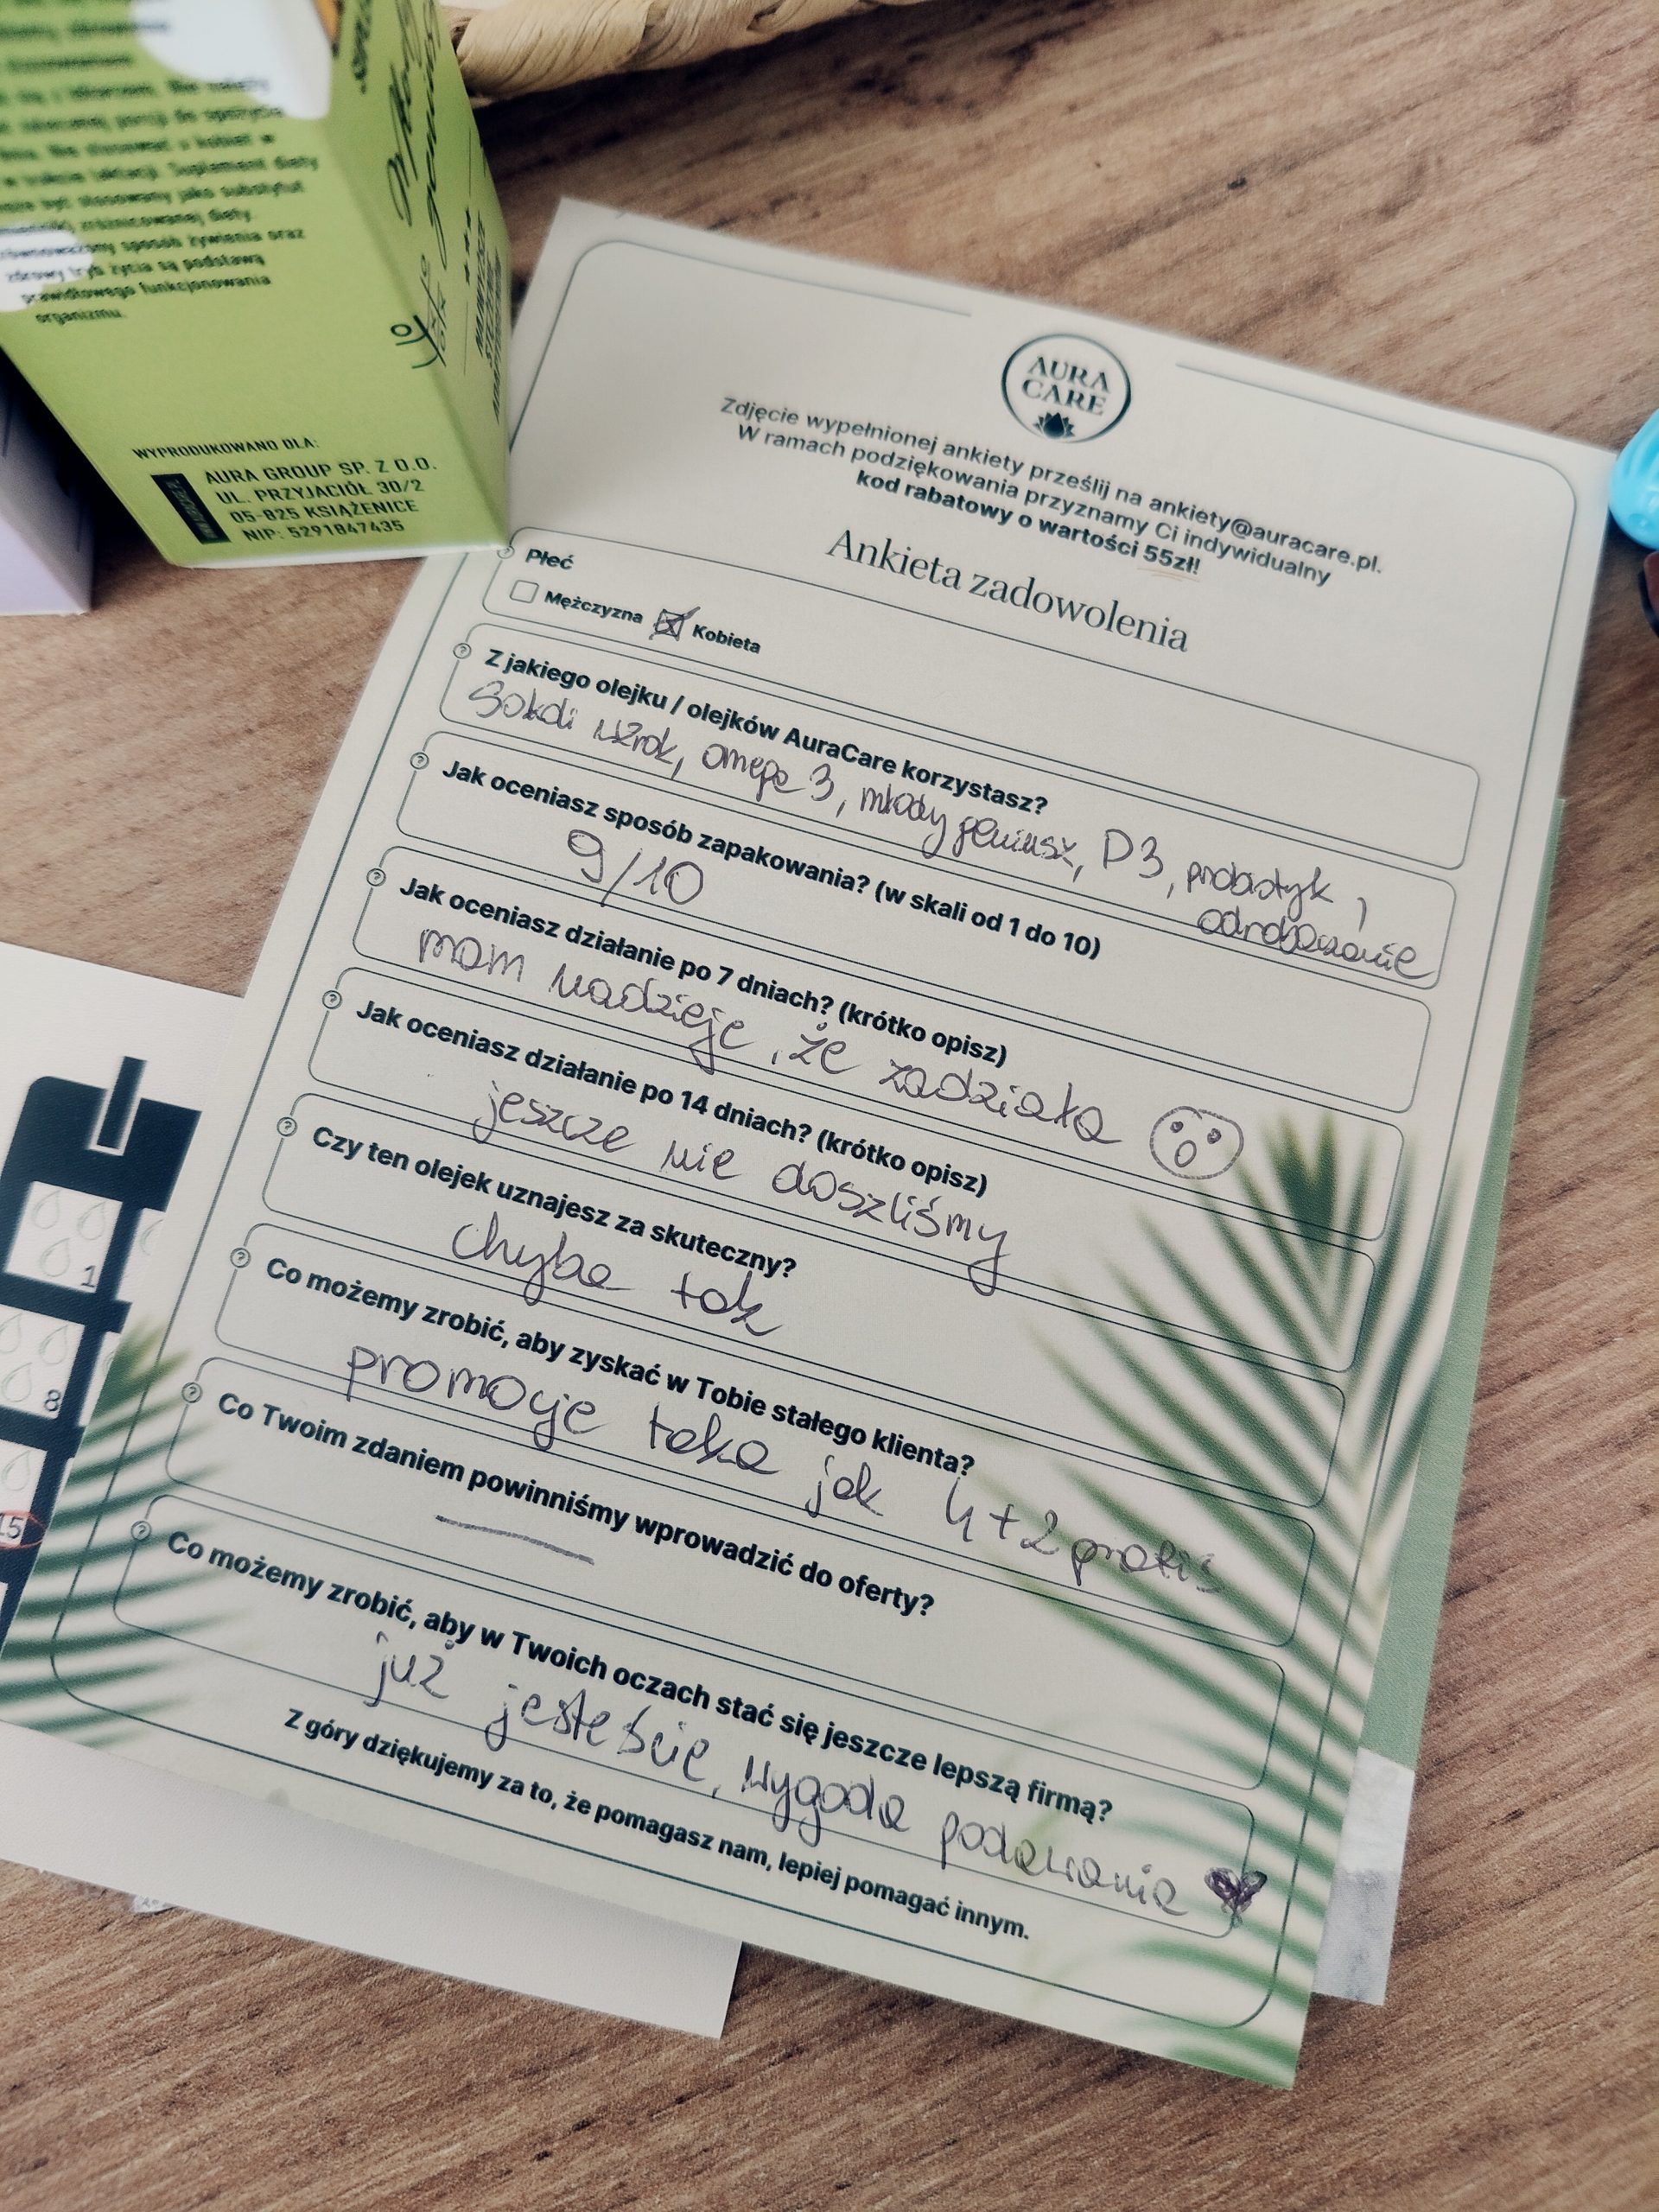 się z lekarzem. Nie należy
w trakcie laktacji. Suplement diety
być stosowany jako substytut
zróżnicowanej diety.
sposób żywienia oraz
zdrowy tryb życia są podstawą
prawidłowego funkcjonowania
organizmu.
WYPRODUKOWANO DLA:
AURA GROUP SP. Z O.O.
UL. PRZYJACIÓŁ 30/2
05-825 KSIĄŻENICE
NIP: 5291847435
Młody
geniusz
AURA
CARE
Zdjęcie wypełnionej ankiety prześlij na ankiety@auracare.pl.
W ramach podziękowania przyznamy Ci indywidualny
kod rabatowy o wartości 55zł!
Ankieta zadowolenia
Płeć
Mężczyzna Kobieta
Z jakiego olejku / olejków AuraCare korzystasz?
Sokoli wzrok, omega 3, młody geniusz, D3, probiotyk,
odrobaczanie
Jak oceniasz sposób zapakowania? (w skali od 1 do 10)
9/10
Jak oceniasz działanie po 7 dniach? (krótko opisz)
mam nadzieję, że zadziała
Jak oceniasz działanie po 14 dniach? (krótko opisz)
jeszcze nie doszliśmy
Czy ten olejek uznajesz za skuteczny?
chyba tak
Co możemy zrobić, aby zyskać w Tobie stałego klienta?
promocje taka jak 4+2 gratis
Co Twoim zdaniem powinniśmy wprowadzić do oferty?
Co możemy zrobić, aby w Twoich oczach stać się jeszcze lepszą firmą?
już jesteście, wygoda podawania
Z góry dziękujemy za to, że pomagasz nam, lepiej pomagać innym.
1
8
15